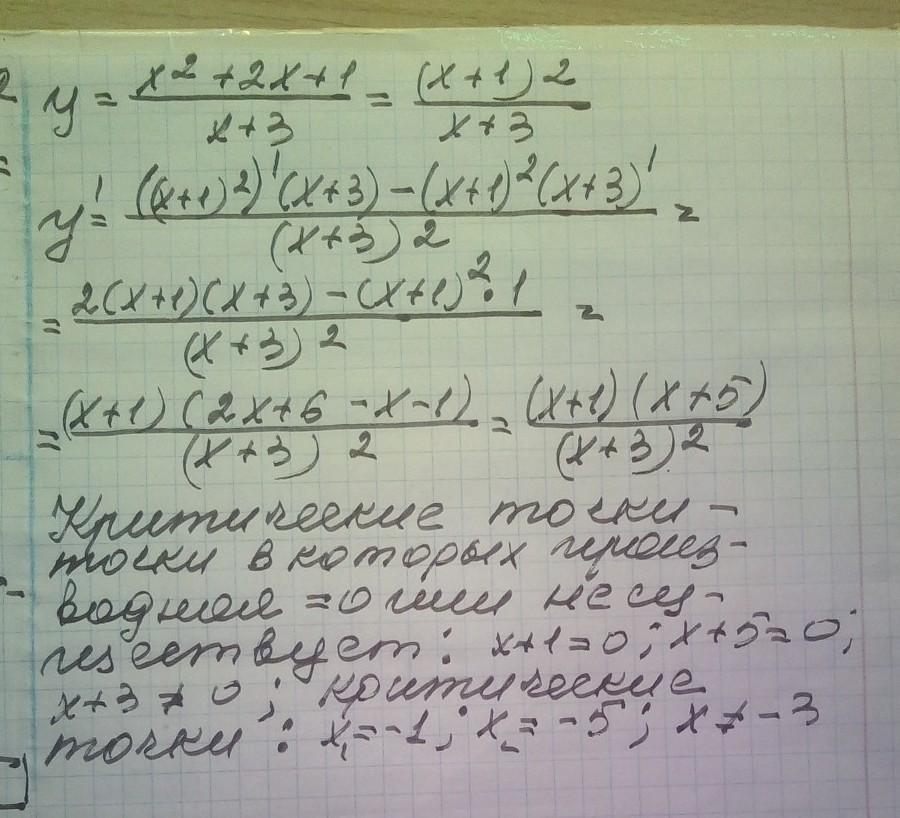 y = (x² + 2x + 1)/(x + 3) = (x+1)²/(x+3)
y' = (((x+1)²)'(x+3) - (x+1)²(x+3)')/(x+3)² =
= (2(x+1)(x+3) - (x+1)²·1)/(x+3)² =
= (x+1)(2x+6-x-1)/(x+3)² = (x+1)(x+5)/(x+3)²
Критические точки -
точки в которых произ-
водная =0 или не су-
ществует: x+1=0; x+5=0;
x+3≠0; критические
точки: x₁=-1; x₂=-5; x≠-3